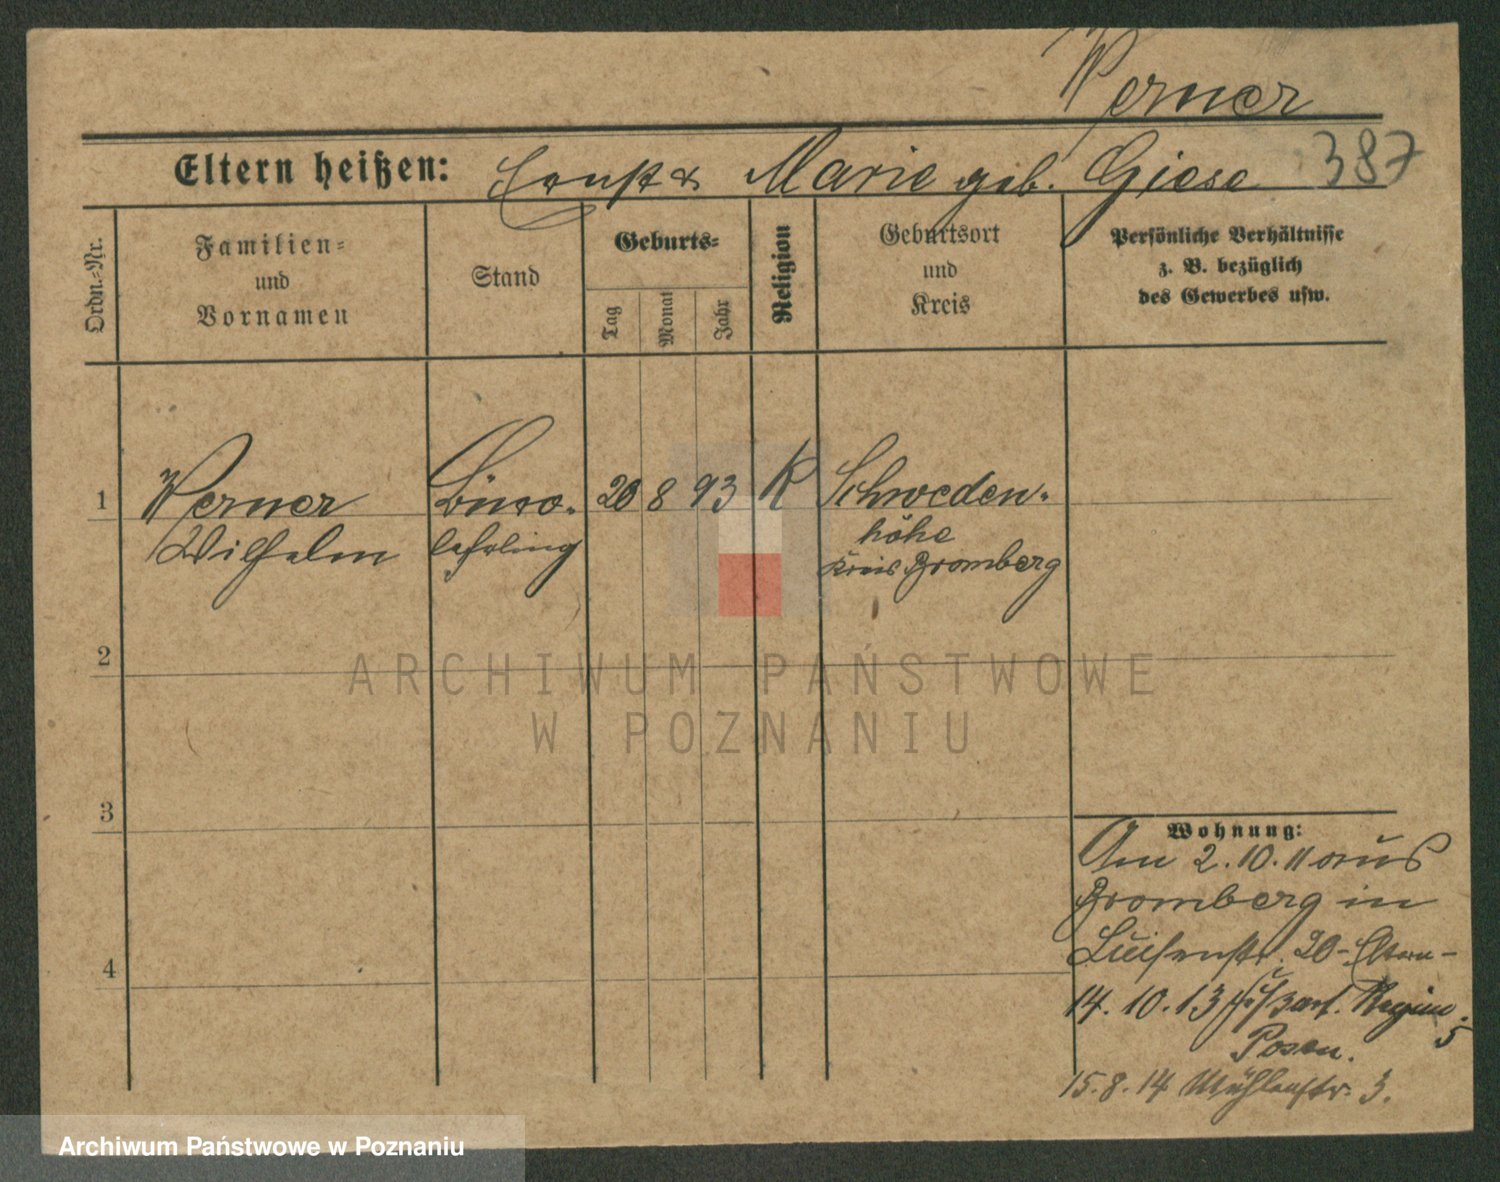 Werner
Eltern heißen: Ernst & Marie geb. Giese 387
Ordn.-Nr.
Familien-
und
Vornamen
Stand
Geburts-
Tag
Monat
Jahr
Religion
Geburtsort
und
Kreis
Persönliche Verhältnisse
z. B. bezüglich
des Gewerbes usw.
1 Werner Büro- 20 8 93 K Schweden-
Wilhelm lehrling höhe
Kreis Bromberg
2
3
4
Wohnung:
Am 2.10.11 aus
Bromberg in
Luisenstr. 20 - Eltern -
14.10.13 Fußart. Regim. 5
Posen.
15.8.14 Mühlenstr. 3.
ARCHIWUM PAŃSTWOWE
W POZNANIU
Archiwum Państwowe w Poznaniu